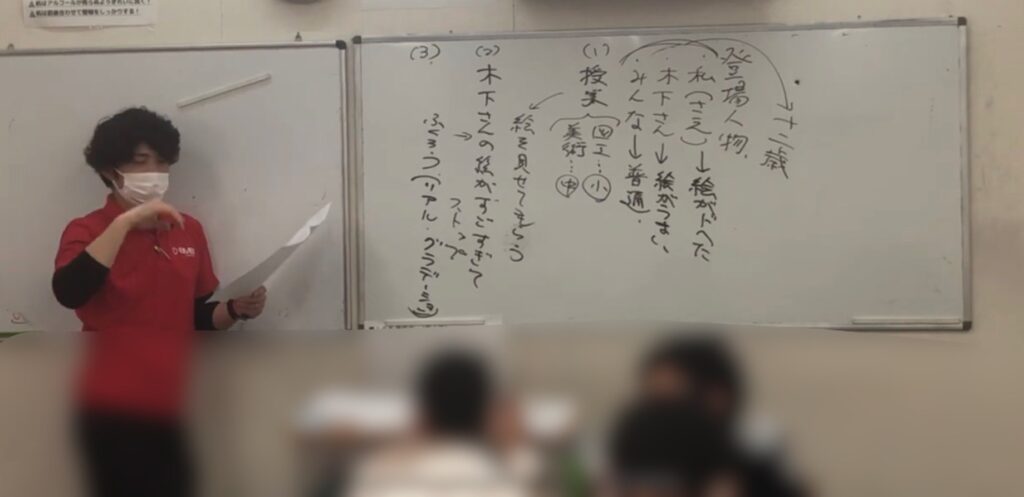 登場人物
十二歳
・私(さえ)→絵がトへた
・木下さん→絵がうまい
・みんな→普通
(1) 授業
図工…小
美術…中
絵を見せてもらう
(2) 木下さんの絵がすごすぎて
ストップ
(3)
ふくろう(リアル・グラデーション)